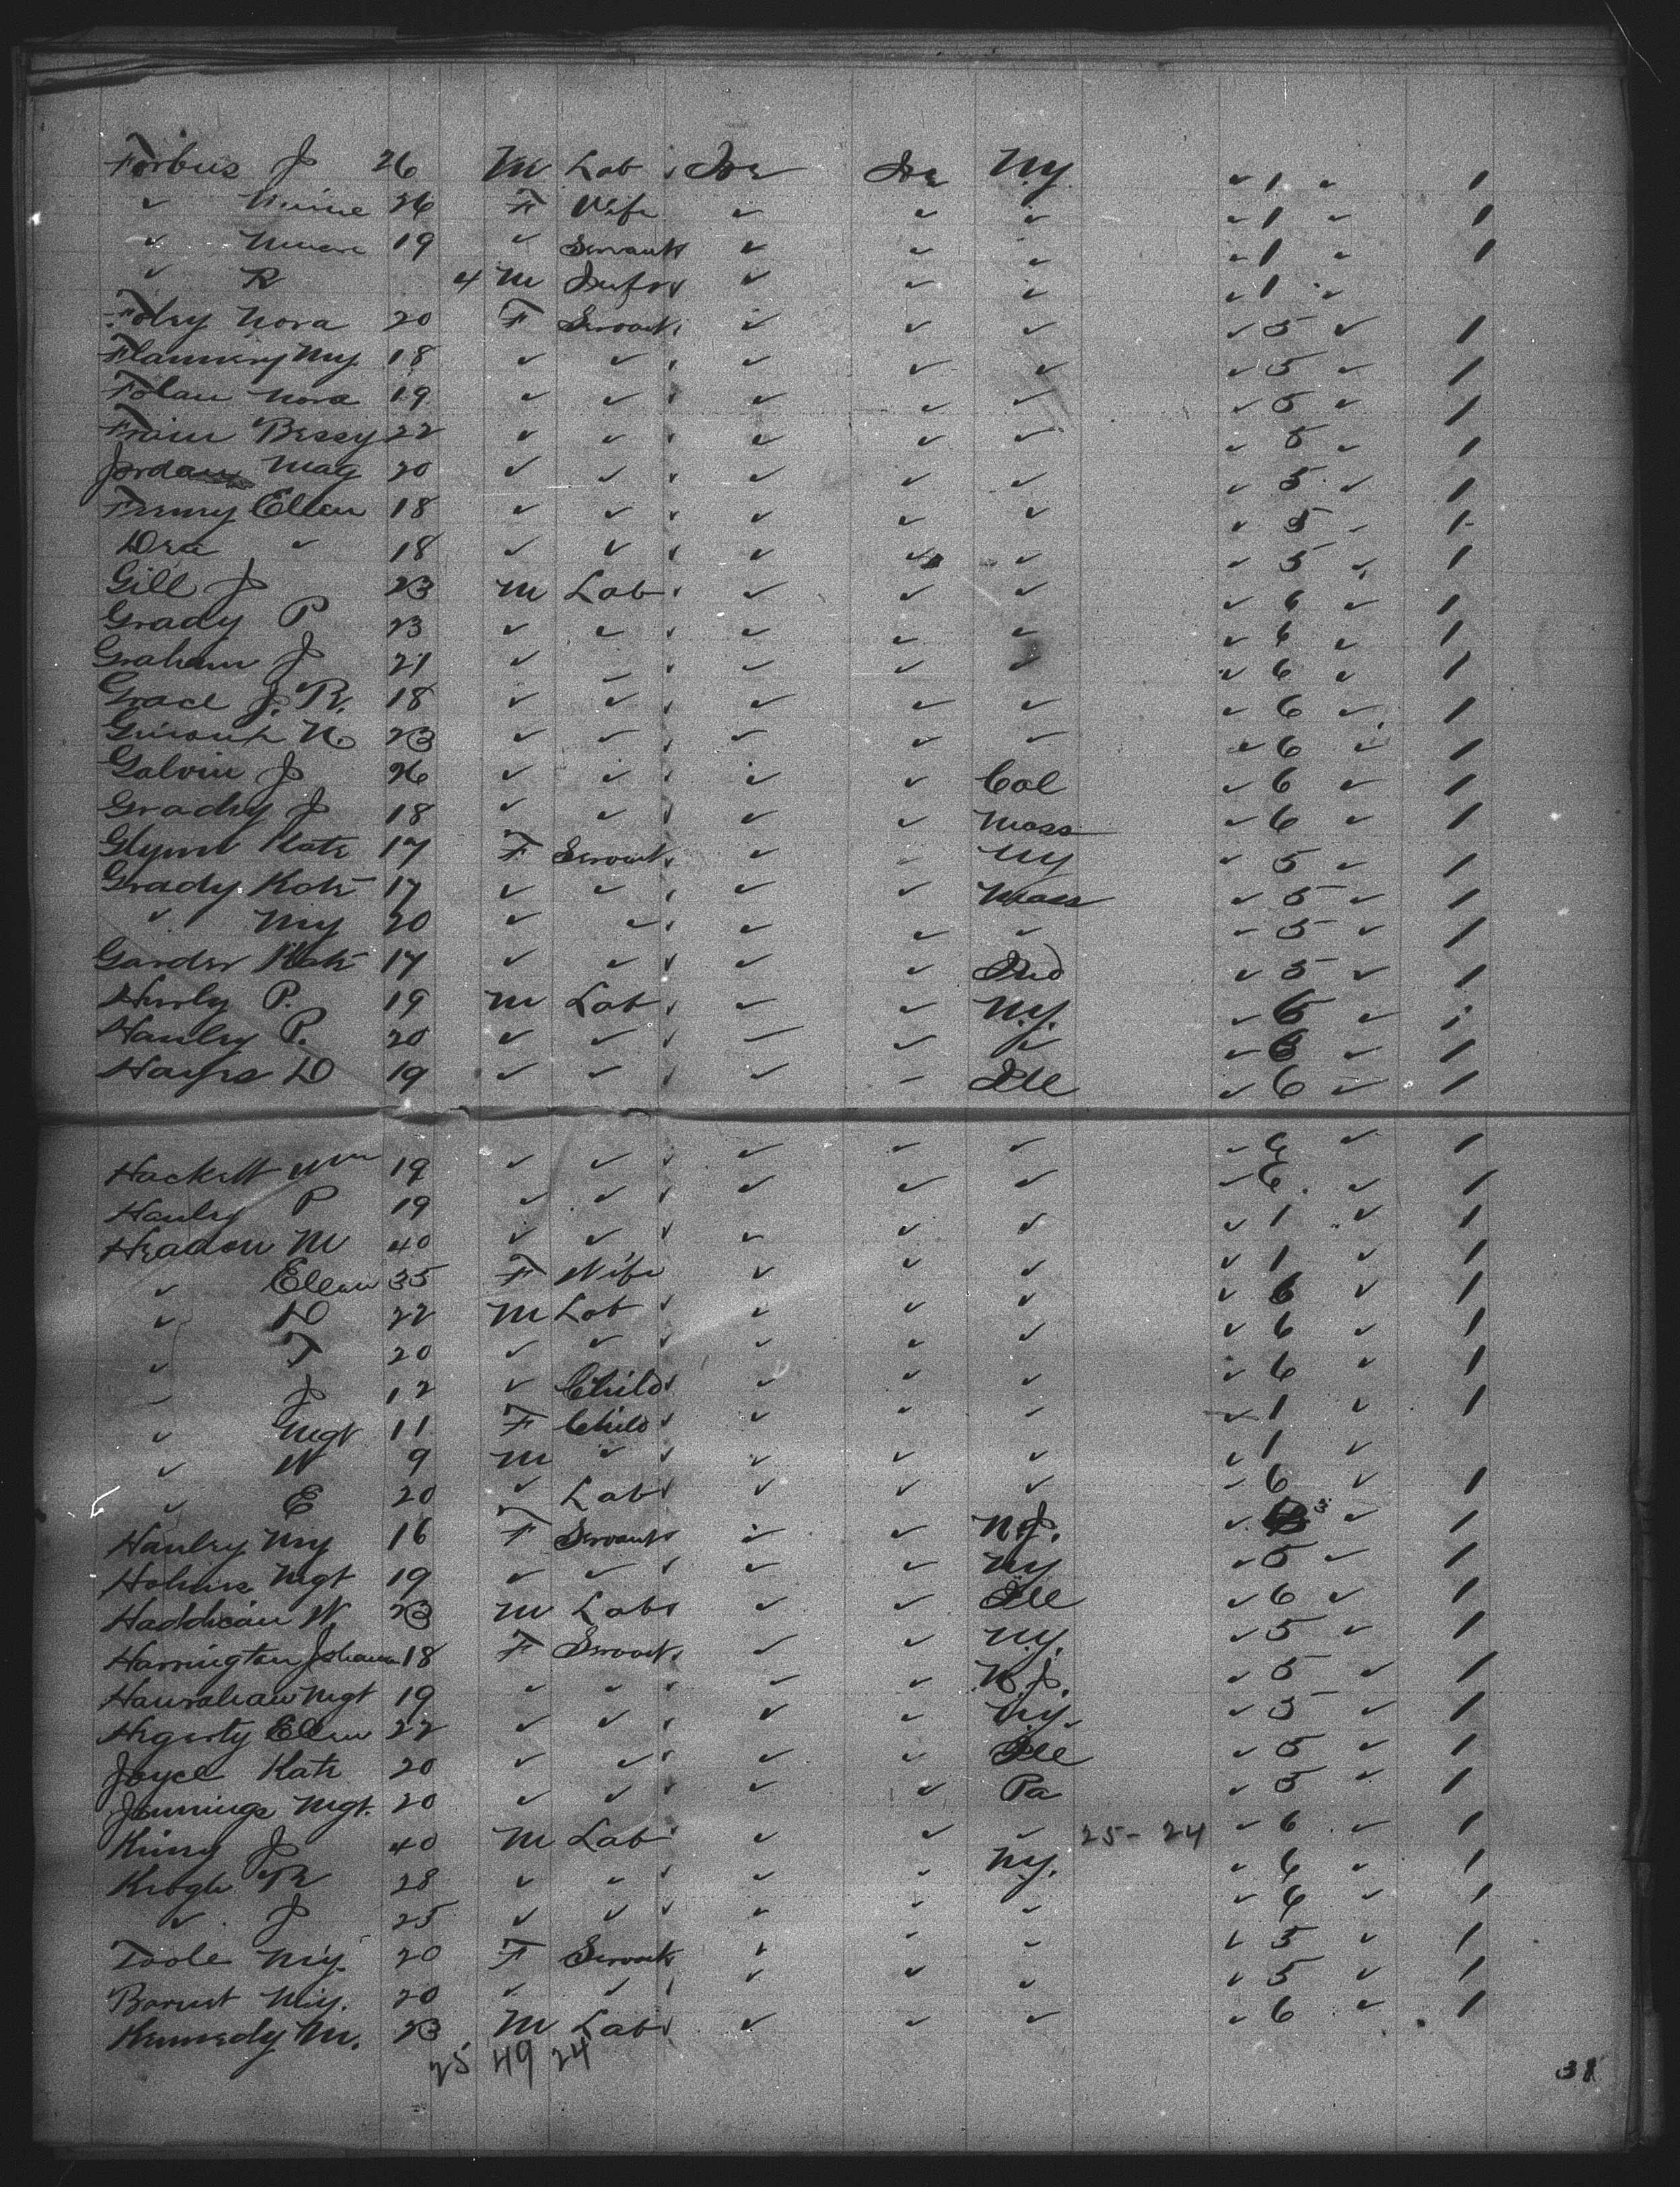 Forbus J 26 M Lab ✓ Ire Ire N.Y. ✓ 1 ✓ 1
✓ Minnie 26 F Wife ✓ ✓ ✓ ✓ 1 ✓ 1
✓ 19 ✓ Servant ✓ ✓ ✓ ✓ ✓ 1 ✓ 1
✓ R 4 M Infs ✓ ✓ ✓ ✓ ✓ 1 ✓
Foley Nora 20 F Servant ✓ ✓ ✓ ✓ 5 ✓ 1
Flannery My 18 ✓ ✓ ✓ ✓ ✓ ✓ ✓ 5 ✓ 1
Folan Nora 19 ✓ ✓ ✓ ✓ ✓ ✓ ✓ 5 ✓ 1
Frain Bessy 22 ✓ ✓ ✓ ✓ ✓ ✓ ✓ 5 ✓ 1
Jordan Mag 20 ✓ ✓ ✓ ✓ ✓ ✓ ✓ 5 ✓ 1
Feeny Ellen 18 ✓ ✓ ✓ ✓ ✓ ✓ ✓ 5 ✓ 1
Dea ✓ 18 ✓ ✓ ✓ ✓ ✓ ✓ ✓ 5 ✓ 1
Gill J 23 M Lab ✓ ✓ ✓ ✓ ✓ 6 ✓ 1
Grady P 23 ✓ ✓ ✓ ✓ ✓ ✓ ✓ 6 ✓ 1
Graham J 21 ✓ ✓ ✓ ✓ ✓ ✓ 6 ✓ 1
Grace J. R. 18 ✓ ✓ ✓ ✓ ✓ ✓ ✓ 6 ✓ 1
23 ✓ ✓ ✓ ✓ ✓ ✓ ✓ 6 ✓ 1
Galvin J 26 ✓ ✓ ✓ ✓ ✓ Cal ✓ 6 ✓ 1
Grady J 18 ✓ ✓ ✓ ✓ ✓ Mass ✓ 6 ✓ 1
Glynn Kate 17 F Servant ✓ ✓ ✓ NY ✓ 5 ✓ 1
Grady Kate 17 ✓ ✓ ✓ ✓ ✓ Mass ✓ 5 ✓ 1
✓ My 20 ✓ ✓ ✓ ✓ ✓ ✓ ✓ 5 ✓ 1
Garder Kate 17 ✓ ✓ ✓ ✓ ✓ Ind ✓ 5 ✓ 1
Hurly P. 19 M Lab ✓ ✓ ✓ N.Y. ✓ 6 ✓ 1
Hanley P. 20 ✓ ✓ ✓ ✓ ✓ ✓ ✓ 6 ✓ 1
Hayes D 19 ✓ ✓ ✓ ✓ ✓ Ill ✓ 6 ✓ 1
Hackett Wm 19 ✓ ✓ ✓ ✓ ✓ ✓ ✓ 6 ✓ 1
Hanley P 19 ✓ ✓ ✓ ✓ ✓ ✓ ✓ 6 ✓ 1
Headon M 40 ✓ ✓ ✓ ✓ ✓ ✓ ✓ 1 ✓ 1
✓ Ellen 35 F Wife ✓ ✓ ✓ ✓ 1 ✓ 1
✓ D 22 M Lab ✓ ✓ ✓ ✓ ✓ 6 ✓ 1
✓ T 20 ✓ ✓ ✓ ✓ ✓ ✓ ✓ 6 ✓ 1
✓ J 12 ✓ Child ✓ ✓ ✓ ✓ ✓ 6 ✓ 1
✓ Mgt 11 F Child ✓ ✓ ✓ ✓ ✓ 1 ✓ 1
✓ W 9 M ✓ ✓ ✓ ✓ ✓ ✓ 1 ✓
✓ E 20 ✓ Lab ✓ ✓ ✓ ✓ ✓ 6 ✓ 1
Hanley My 16 F Servant ✓ ✓ N.J. ✓ 3 ✓ 1
Holmes Mgt 19 ✓ ✓ ✓ ✓ ✓ NY ✓ 5 ✓ 1
Haddican W. 23 M Lab ✓ ✓ ✓ Ill ✓ 6 ✓ 1
Harrington Johana 18 F Servant ✓ ✓ ✓ N.Y. ✓ 5 ✓ 1
Hanrahan Mgt 19 ✓ ✓ ✓ ✓ ✓ N.J. ✓ 5 ✓ 1
Hegerty Ellen 22 ✓ ✓ ✓ ✓ ✓ N.Y. ✓ 5 ✓ 1
Joyce Kate 20 ✓ ✓ ✓ ✓ ✓ Ill ✓ 5 ✓ 1
Jennings Mgt. 20 ✓ ✓ ✓ ✓ ✓ Pa ✓ 5 ✓ 1
King J 40 M Lab ✓ ✓ ✓ ✓ 25 - 24 ✓ 6 ✓ 1
Keogh R 28 ✓ ✓ ✓ ✓ ✓ N.Y. ✓ 6 ✓ 1
✓ J 25 ✓ ✓ ✓ ✓ ✓ ✓ ✓ 6 ✓ 1
Toole My. 20 F Servant ✓ ✓ ✓ ✓ 5 ✓ 1
My. 20 ✓ ✓ ✓ ✓ ✓ ✓ ✓ 5 ✓ 1
Kennedy M. 23 M Lab ✓ ✓ ✓ ✓ ✓ 6 ✓ 1
25 49 24
38